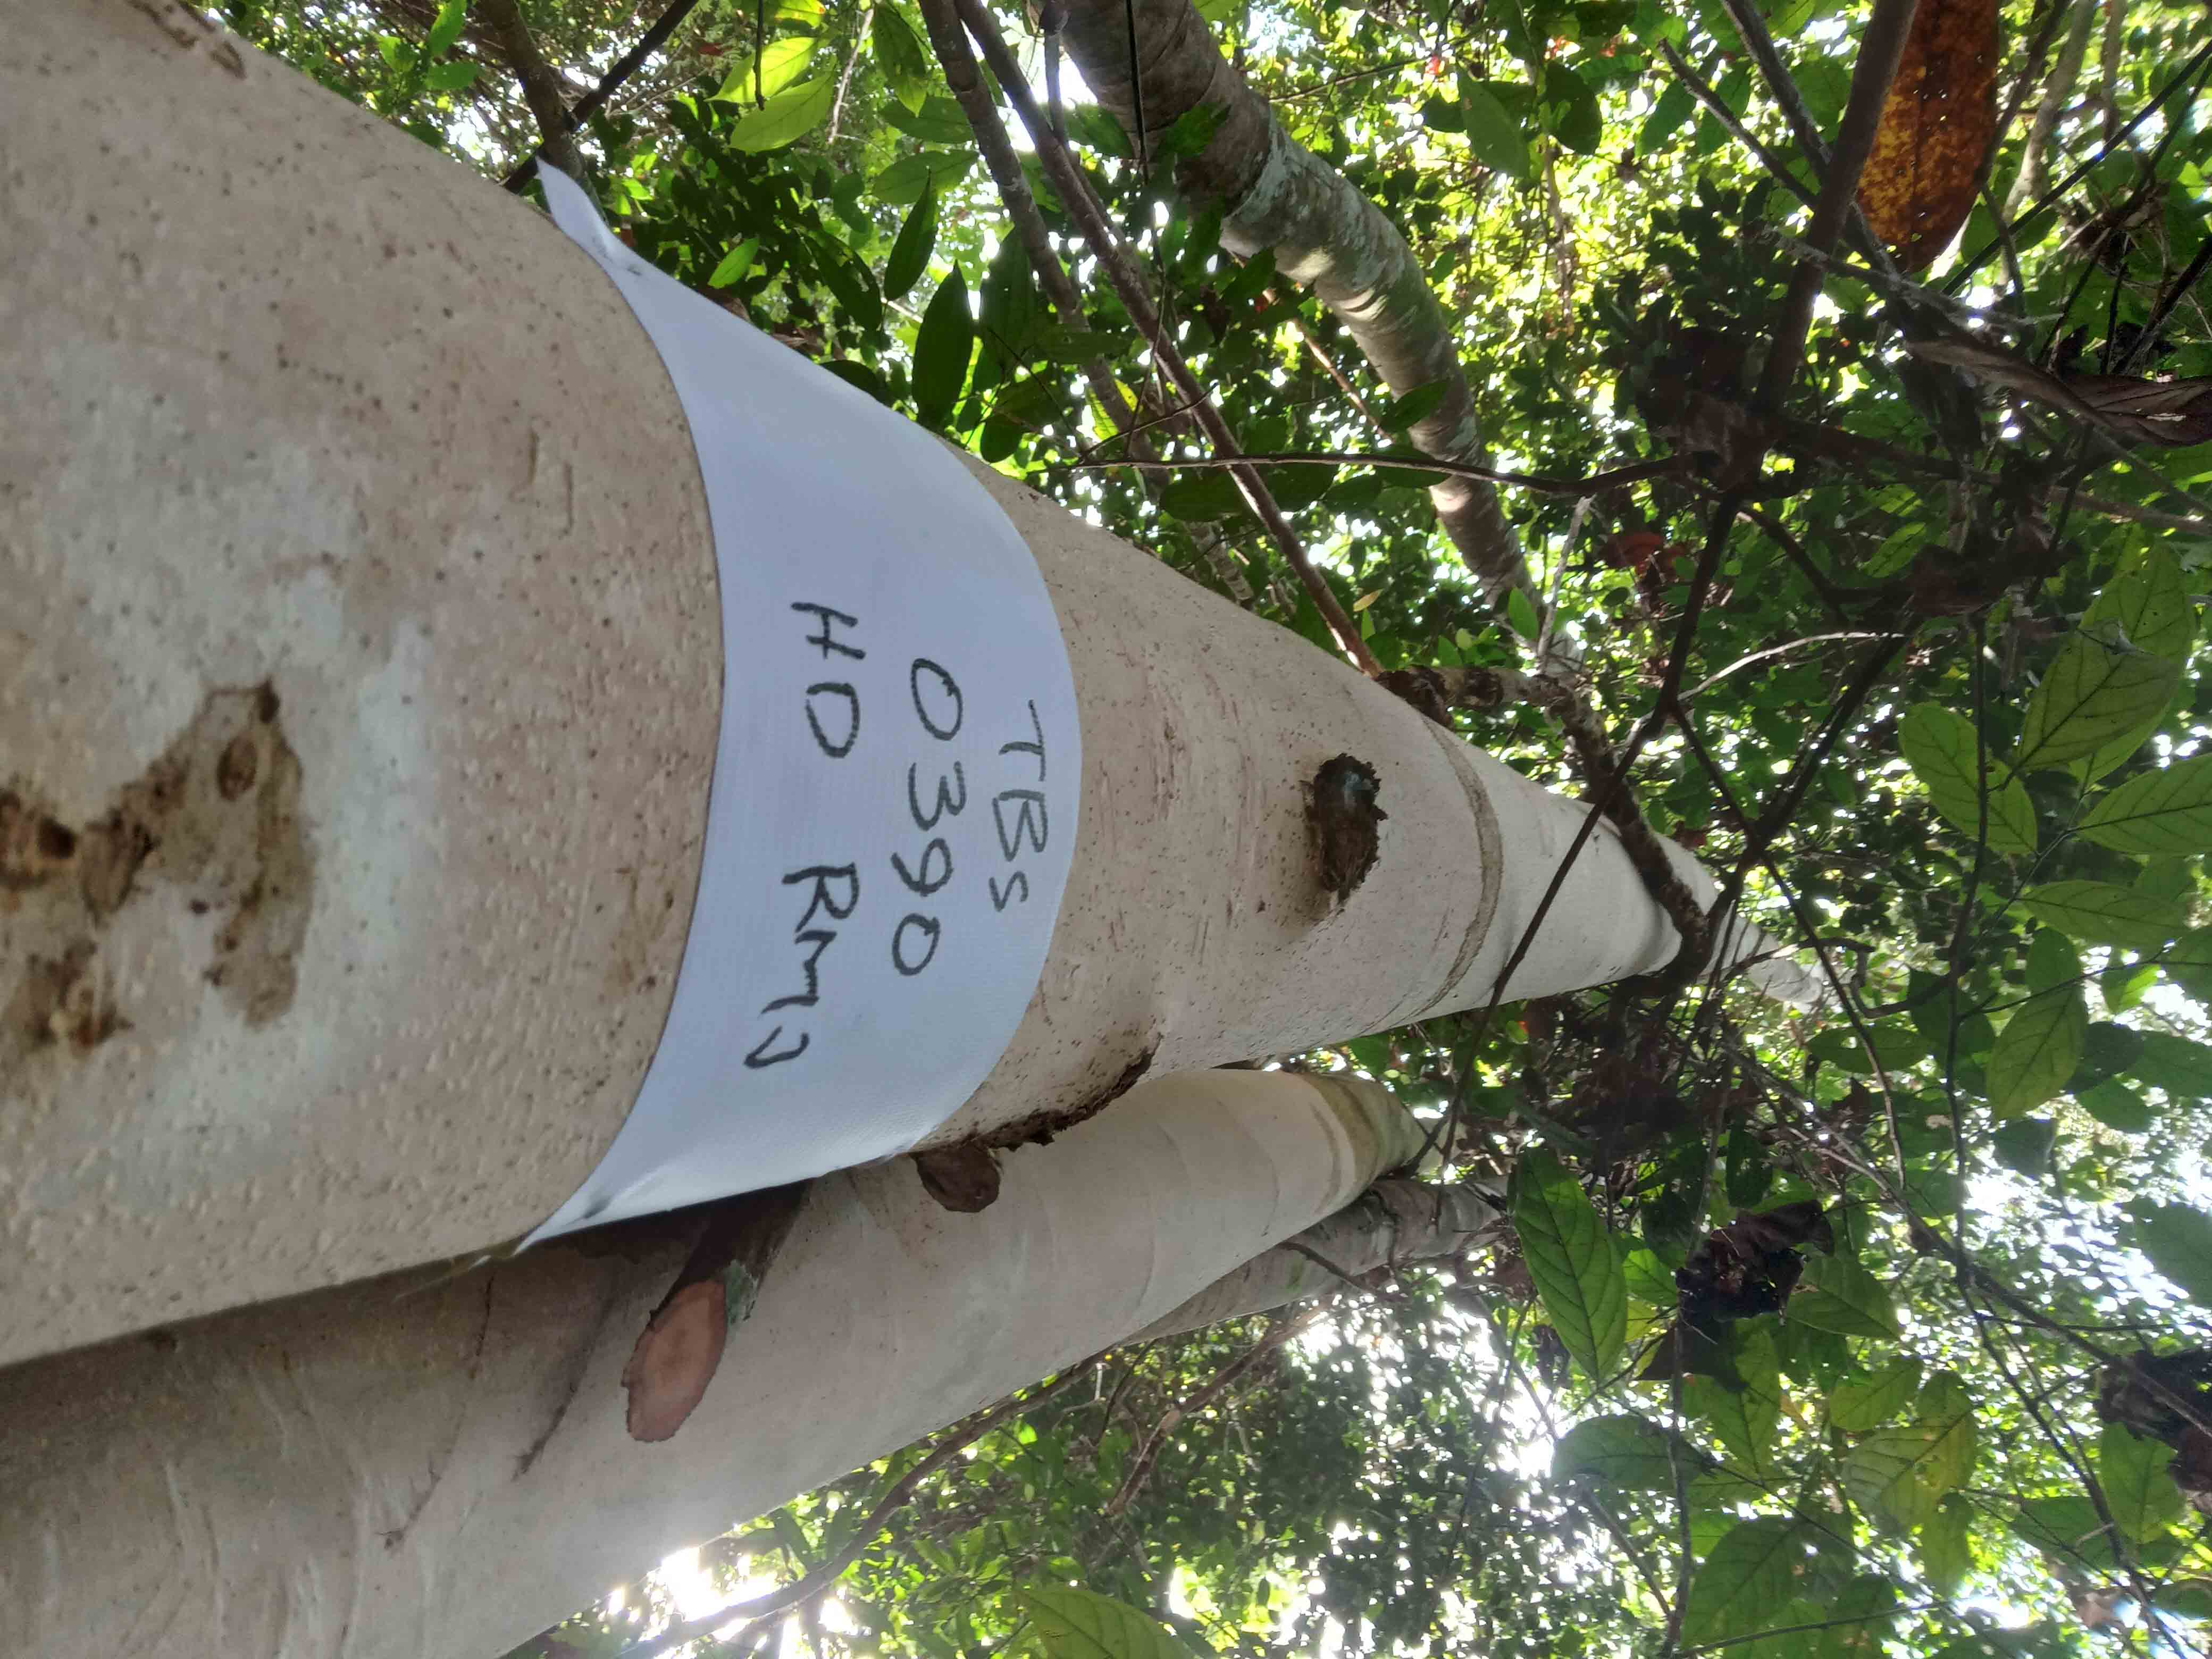 TBS
0390
HD RMJ